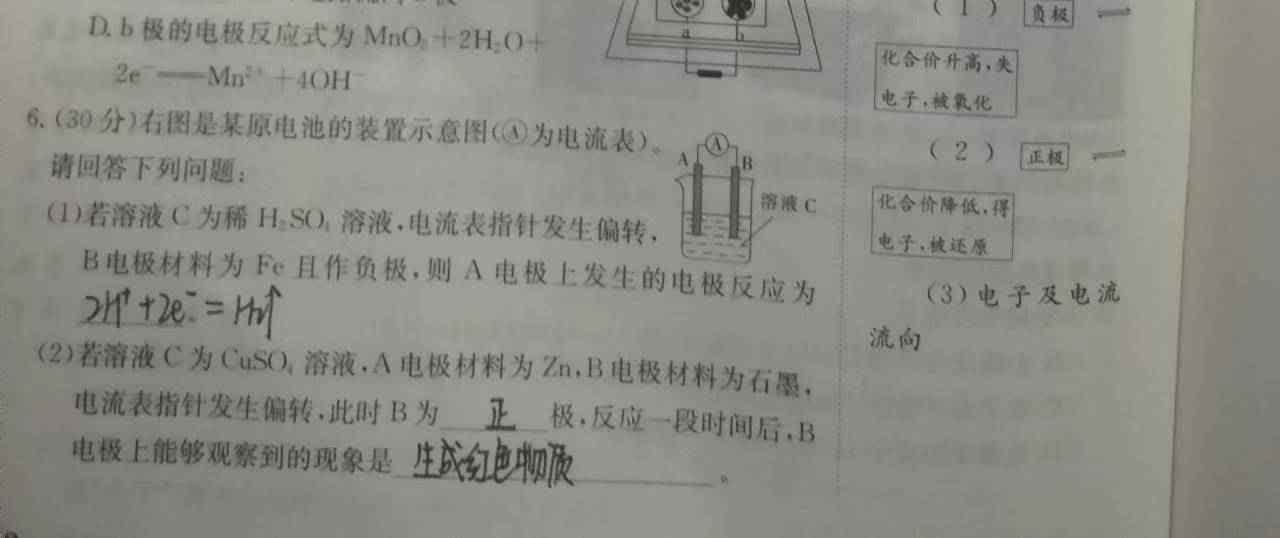 D. b 极的电极反应式为 MnO₂+2H₂O+
2e⁻══Mn²⁺+4OH⁻
6. (30 分)右图是某原电池的装置示意图(Ⓐ为电流表)。
请回答下列问题:
A
A
B
溶液 C
(1)若溶液 C 为稀 H₂SO₄ 溶液,电流表指针发生偏转,
B电极材料为 Fe 且作负极,则 A 电极上发生的电极反应为
2H⁺+2e⁻=H₂↑
(2)若溶液 C 为 CuSO₄ 溶液,A 电极材料为 Zn,B 电极材料为石墨,
电流表指针发生偏转,此时 B 为 正 极,反应一段时间后,B
电极上能够观察到的现象是 生成红色物质 。
a
b
(1) 负极
化合价升高,失
电子,被氧化
(2) 正极
化合价降低,得
电子,被还原
(3)电子及电流
流向